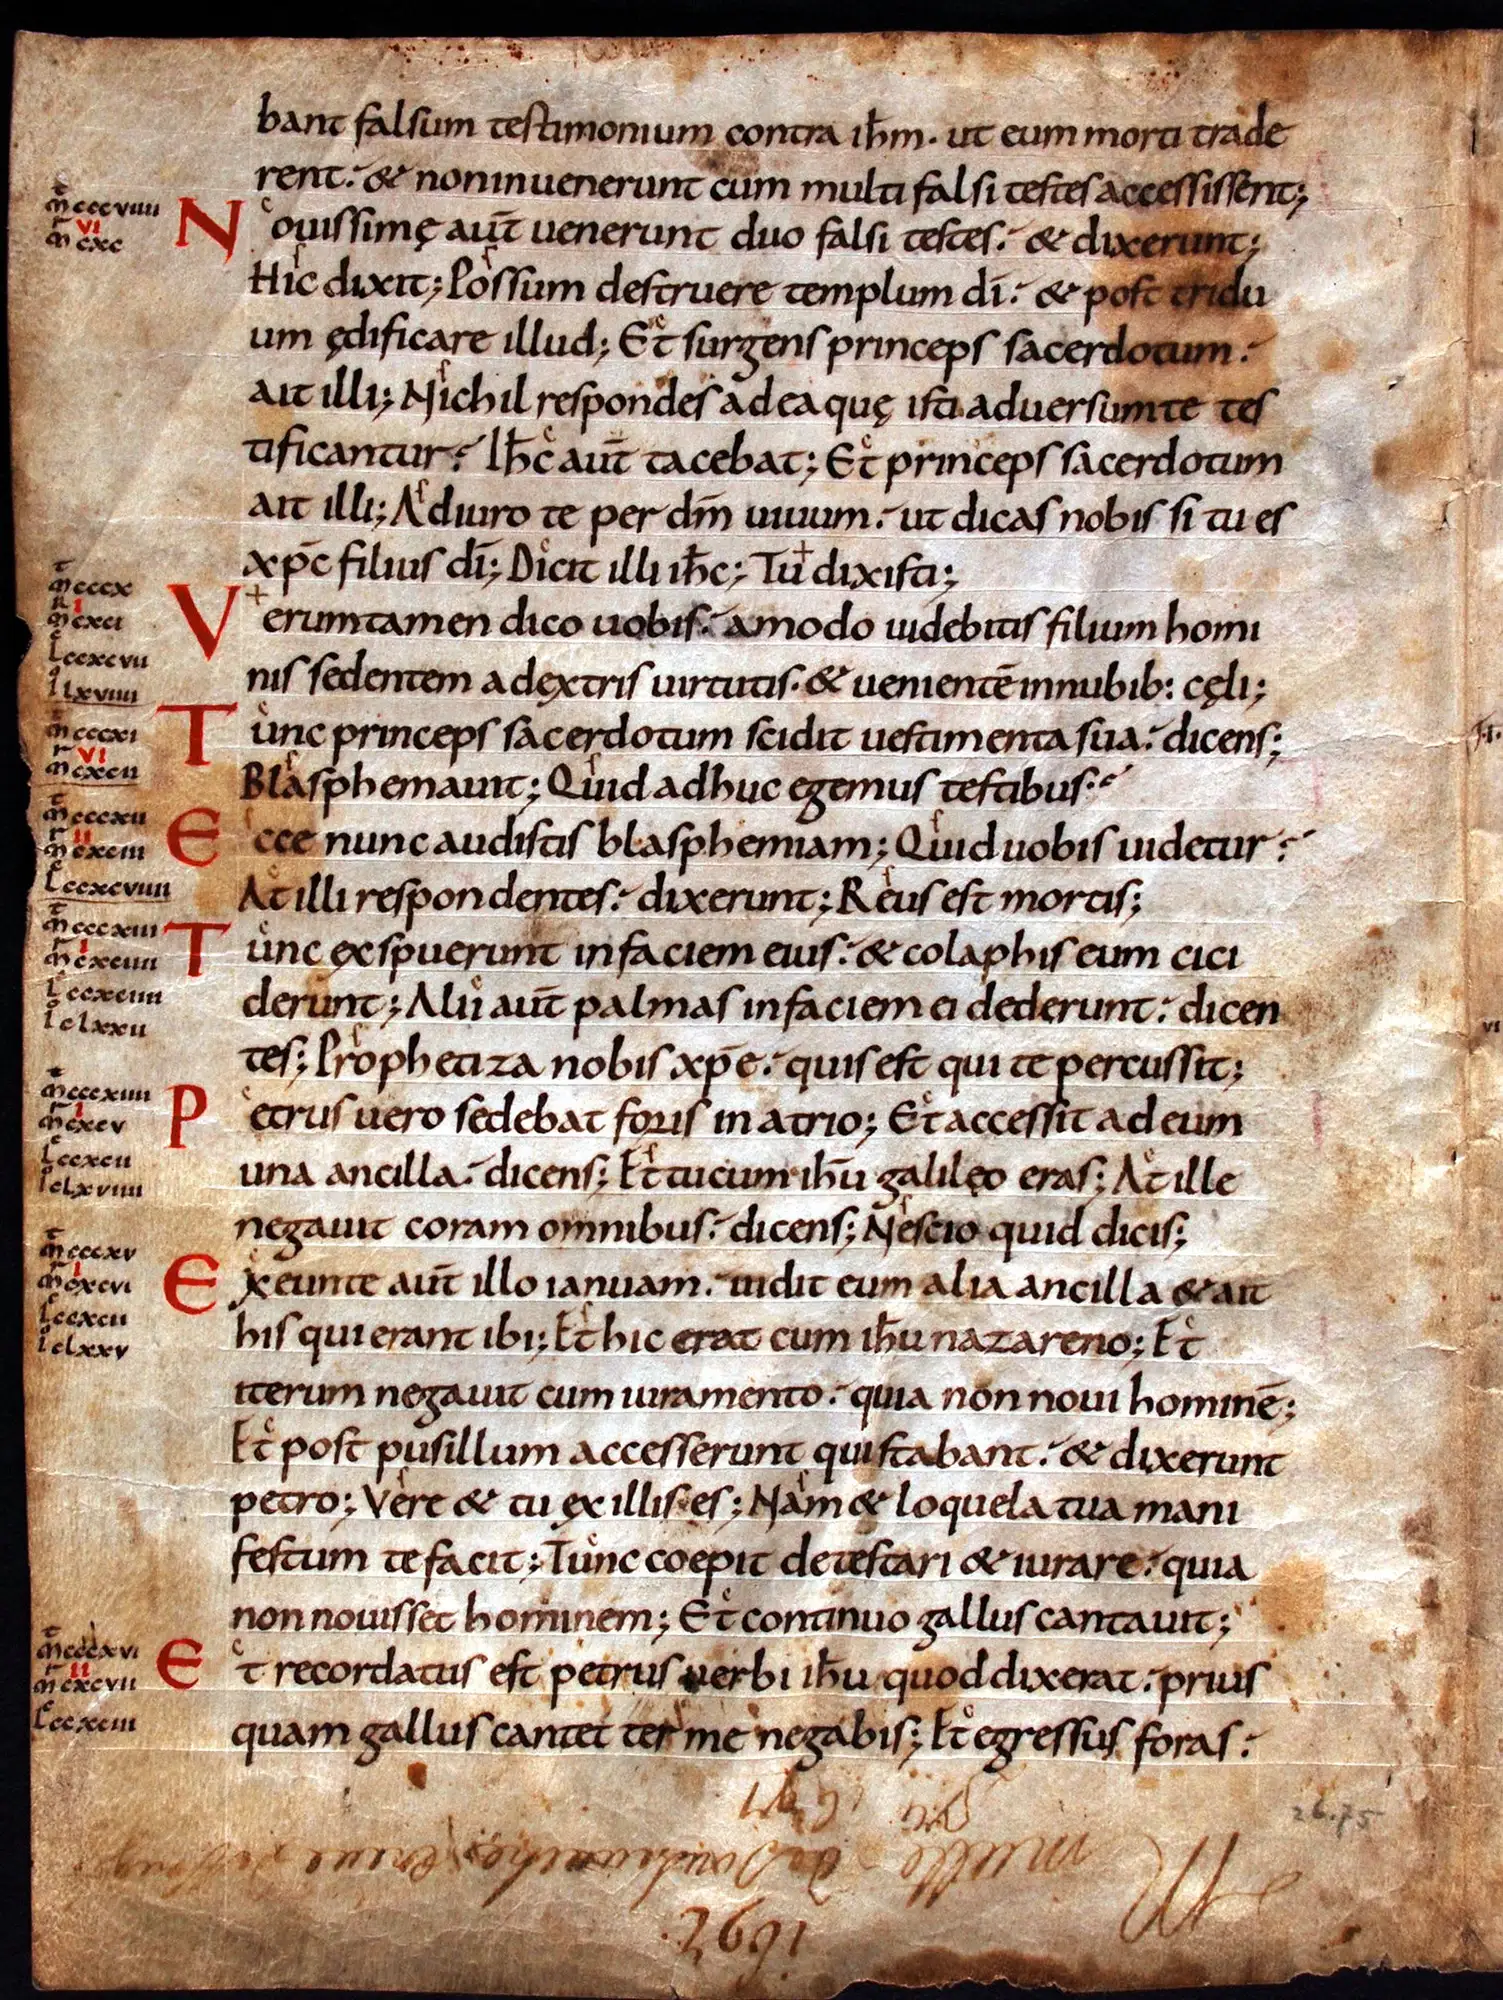 bant falsum testimonium contra ih̅m. ut eum morti trade
rent. & non inuenerunt cum multi falsi testes accessissent;
Nouissimę aut̅ uenerunt duo falsi testes. & dixerunt;
Hic dixit; Possum destruere templum di̅. & post tridu
um ędificare illud; Et surgens princeps sacerdotum.
ait illi; Nichil respondes ad ea quę isti aduersum te tes
tificantur? Ih̅c aut̅ tacebat; Et princeps sacerdotum
ait illi; Adiuro te per dm̅ uiuum. ut dicas nobis si tu es
xp̅c filius di̅; Dicit illi ih̅c; Tu dixisti;
Verumtamen dico uobis. amodo uidebitis filium homi
nis sedentem a dextris uirtutis. & uenientē in nubib: cęli;
Tunc princeps sacerdotum scidit uestimenta sua. dicens;
Blasphemauit; Quid adhuc egemus testibus?
Ecce nunc audistis blasphemiam; Quid uobis uidetur?
At illi respondentes. dixerunt; Reus est mortis;
Tunc ęxspuerunt in faciem eius. & colaphis eum cici
derunt; Alii aut̅ palmas in faciem ei dederunt. dicen
tes; Prophetiza nobis xp̅e. quis est qui te percussit;
Petrus uero sedebat foris in atrio; Et accessit ad eum
una ancilla. dicens; Et tu cum ih̅u galilęo eras; At ille
negauit coram omnibus. dicens; Nescio quid dicis;
Exeunte aut̅ illo ianuam. uidit eum alia ancilla & ait
his qui erant ibi; Et hic erat cum ih̅u nazareno; Et
iterum negauit cum iuramento. quia non noui hominē;
Et post pusillum accesserunt qui stabant. & dixerunt
petro; Vere & tu ęx illis es; Nam & loquela tua mani
festum te facit; Tunc coepit detestari & iurare. quia
non nouisset hominem; Et continuo gallus cantauit;
Et recordatus est petrus uerbi ih̅u quod dixerat. prius
quam gallus cantet ter me negabis; Et egressus foras.
m̅ cccviiii
VI
m̅ cxc
m̅ cccx
I
m̅ cxci
l ccxcvii
i lxviiii
m̅ cccxi
VI
m̅ cxcii
m̅ cccxii
II
m̅ cxciii
l ccxcviii
m̅ cccxiii
I
m̅ cxciiii
l ccxciiii
i clxxii
m̅ cccxiiii
I
m̅ cxcv
l ccxcii
i clxviiii
m̅ cccxv
I
m̅ cxcvi
l ccxcii
i clxxv
m̅ cccxvi
II
m̅ cxcvii
l ccxciii
26.75
1692